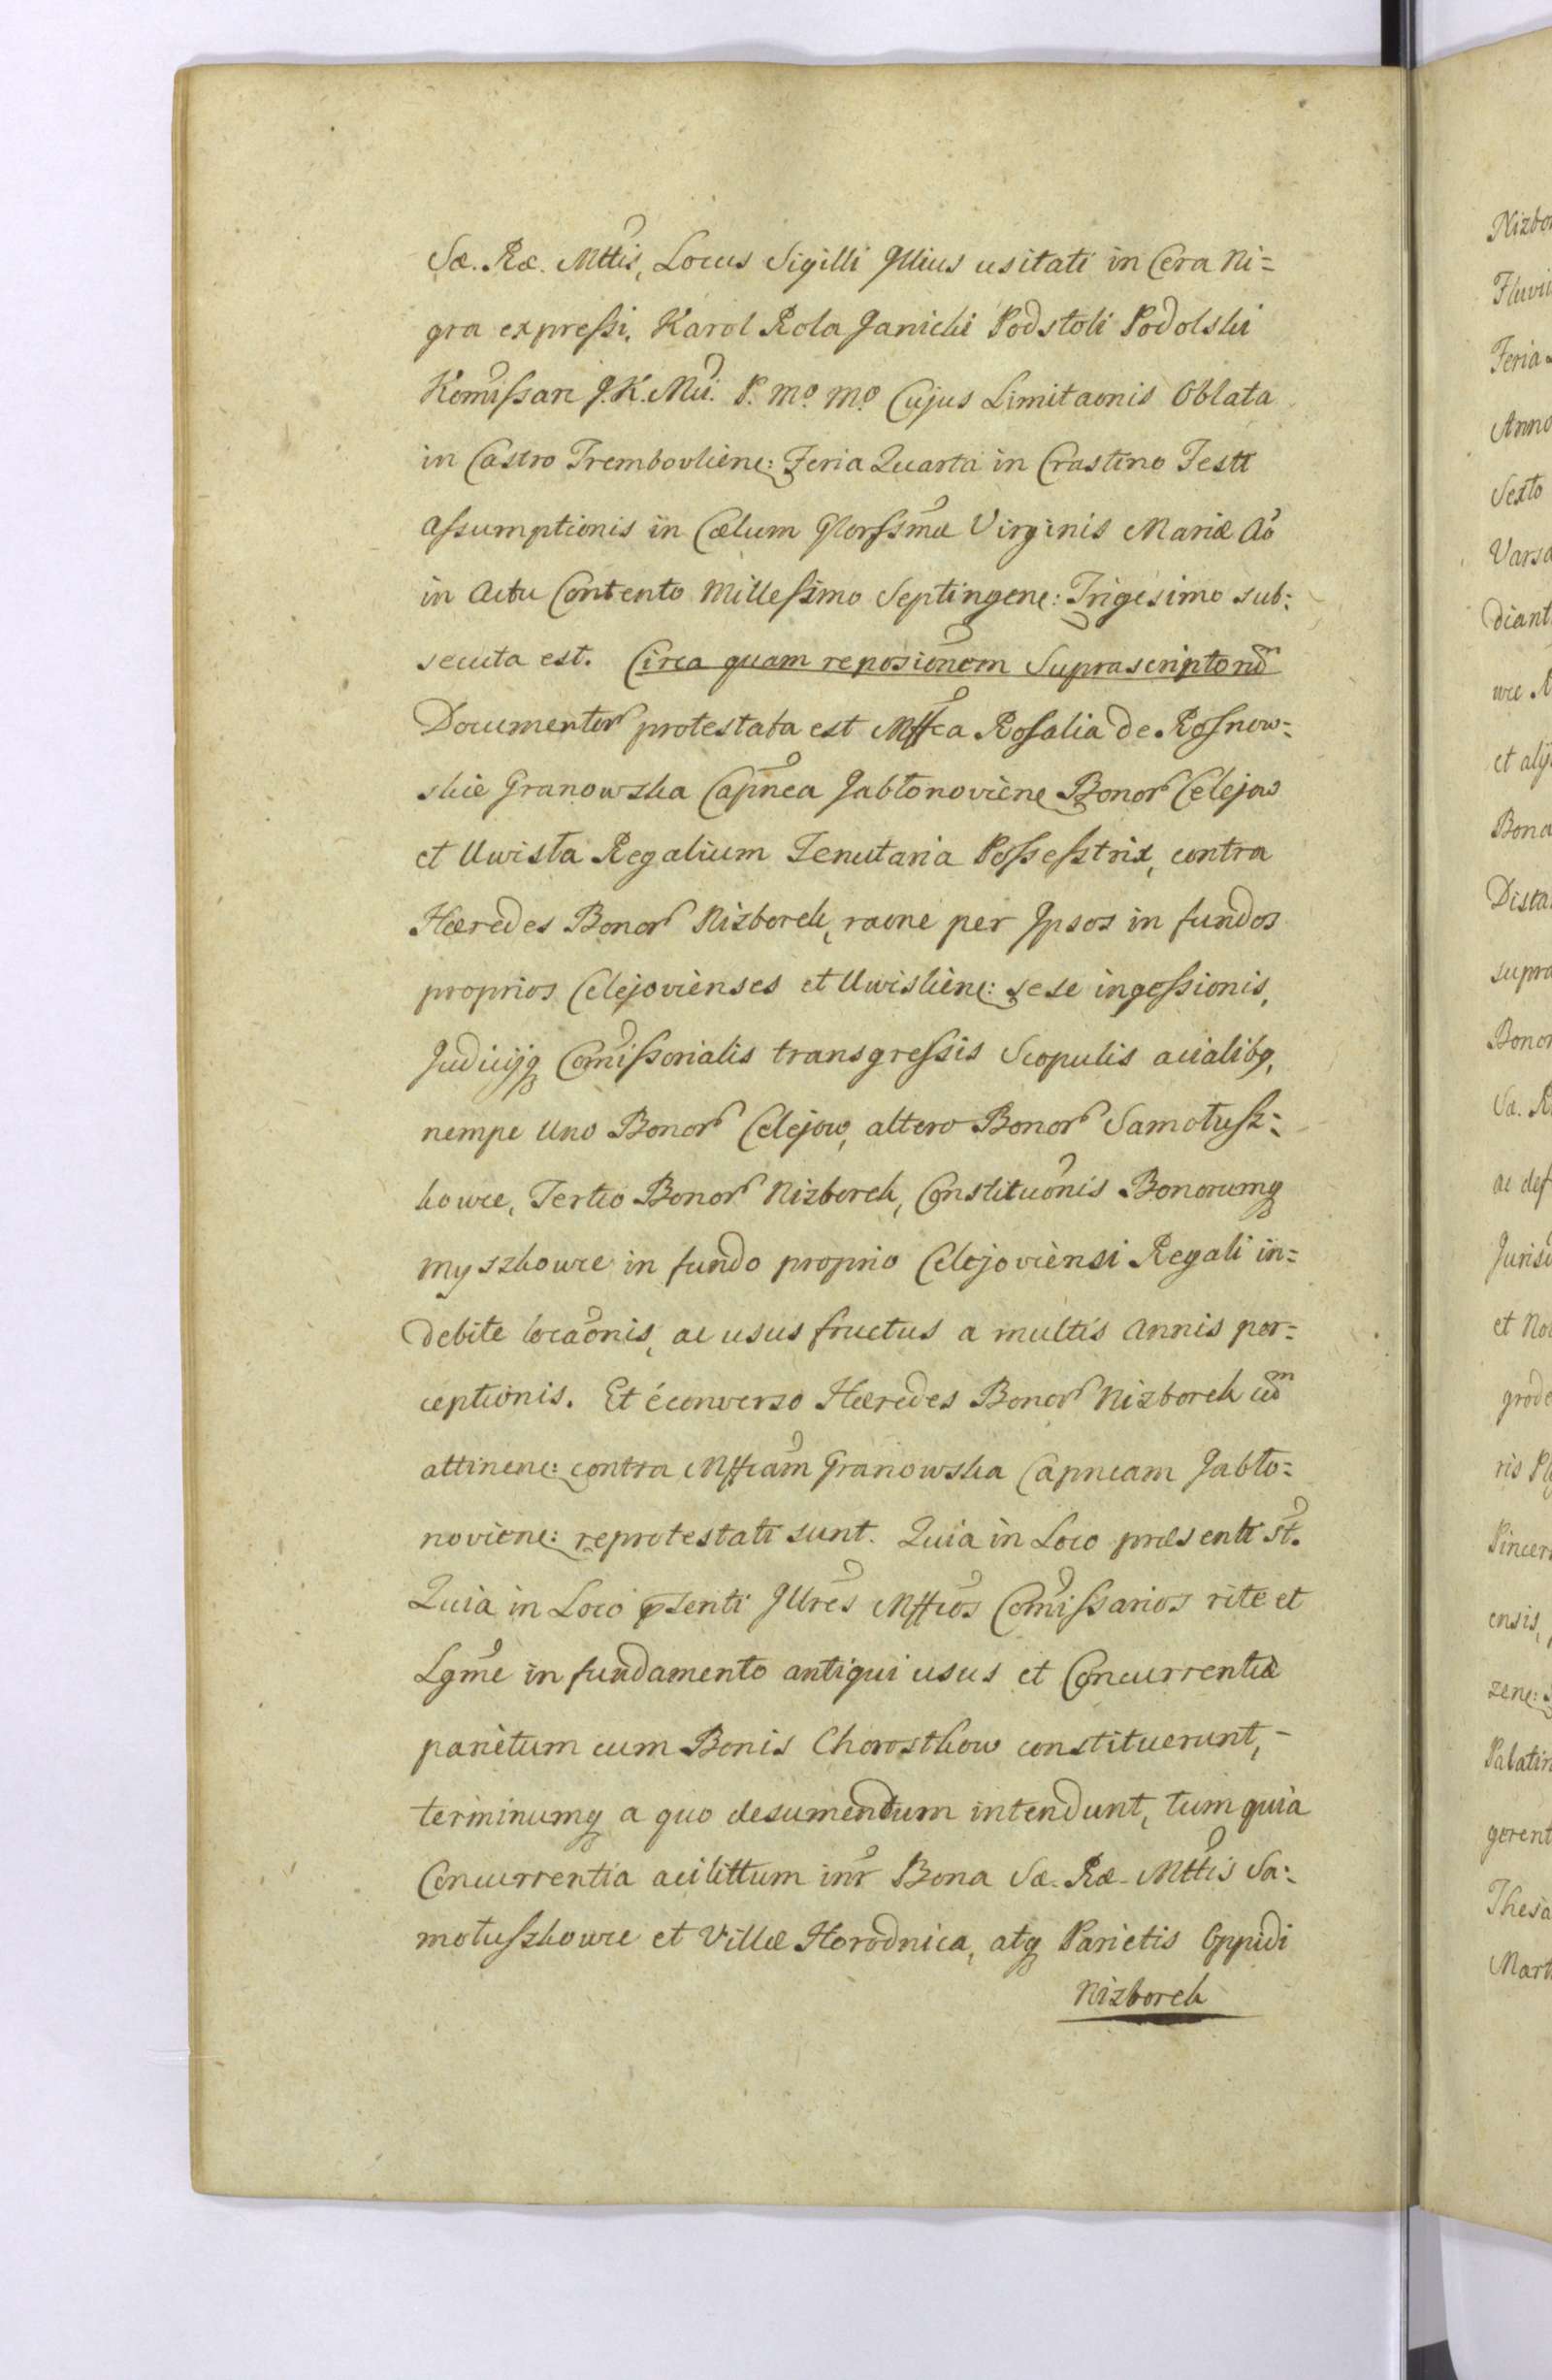 Sæ. Ræ. Mttis, Locus Sigilli Illius usitati in Cera Ni=
gra expressi, Karol Rola Janicki Podstoli Podolski
Komissarz J. K. Mci. P. mo. mo. Cujus Limitaonis Oblata
in Castro Trembovliene: Feria Quarta in Crastino Festi
Assumptionis in Cælum Glorssmæ Virginis Mariæ Ao
in Actu Contento Millessimo Septingene: Trigesimo sub:
secuta est. Circa quam reposionem Suprascriptorum
Documentor protestata est Mffca Rosalia de Rosnow-
skie Granowska Capnea Jabłonoviene Bonor Celejow
et Uwisła Regalium Tenutaria Possesstrix, contra
Hæredes Bonor Nizborek, raone per Ipsos in fundos
proprios Celejovienses et Uwisliene: sese ingessionis,
Judicijq Comissorialis transgressis Scopulis acialibq,
nempe Uno Bonor Celejow, altero Bonor Samołusk=
kowce, Tertio Bonor Nizborek, Constituonis Bonorumq
Myszkowce in fundo proprio Celejoviensi Regali in=
debite locaonis, ac usus fructus a multis Annis per=
ceptionis. Et éconverso Hæredes Bonor Nizborek cum
attinene: contra Mffcam Granowska Capneam Jabło=
noviene: reprotestati sunt. Quia in Loco præsenti st.
Quia in Loco psenti Illres Mffcos Comissarios rite et
Lgme in fundamento antiqui usus et Concurrentiæ
parietum cum Bonis Chorostkow constituerunt, -
terminumq a quo desumendum intendunt, tum quia
Concurrentia acilittum inr Bona Sæ. Ræ. Mttis Sa=
mołuszkowce et Villæ Horodnica, atq Parietis Oppidi
Nizborek
Nizbor
Fluvii
Feria
Anno
Sexto
Varsa
diant
wce
et alij
Bona
Dista
supra
Bonor
Sæ. R
ac def
Jurisd
et No
grode
ris
Pincer
ensis,
zene:
Palatin
gerent
Thesa
Mart